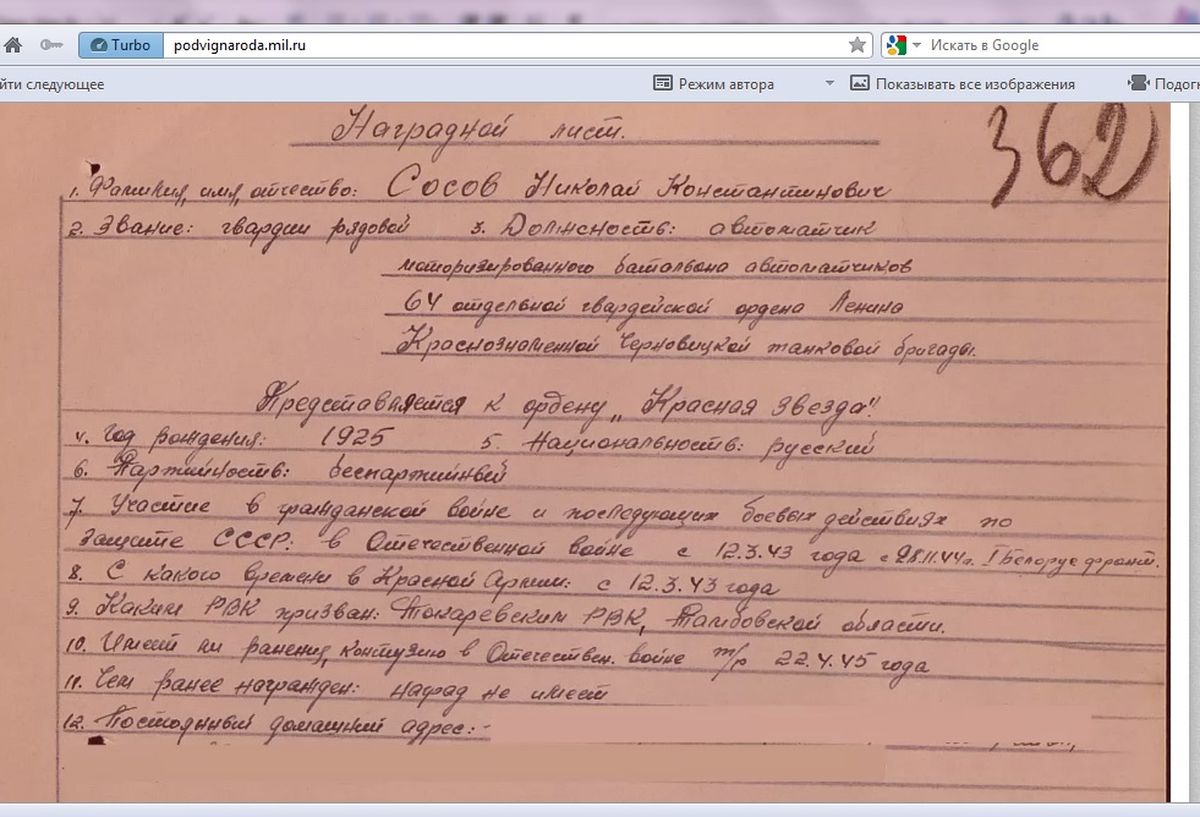 Turbo podvignaroda.mil.ru Искать в Google
йти следующее Режим автора Показывать все изображения Подог
362
Наградной лист.
1. Фамилия, имя, отчество: Сосов Николай Константинович
2. Звание: гвардии рядовой 3. Должность: автоматчик
моторизированного батальона автоматчиков
64 отдельной гвардейской ордена Ленина
Краснознаменной Черновицкой танковой бригады.
Представляется к ордену „Красная Звезда".
4. Год рождения: 1925 5. Национальность: русский
6. Партийность: беспартийный
7. Участие в гражданской войне и последующих боевых действиях по
защите СССР: в Отечественной войне с 12.3.43 года с 28.11.44г. I Белорус фронт.
8. С какого времени в Красной Армии: с 12.3.43 года
9. Каким РВК призван: Токаревским РВК, Тамбовской области.
10. Имеет ли ранения, контузию в Отечествен. войне т/р 22.4.45 года
11. Чем ранее награжден: наград не имеет
12. Постоянный домашний адрес:-